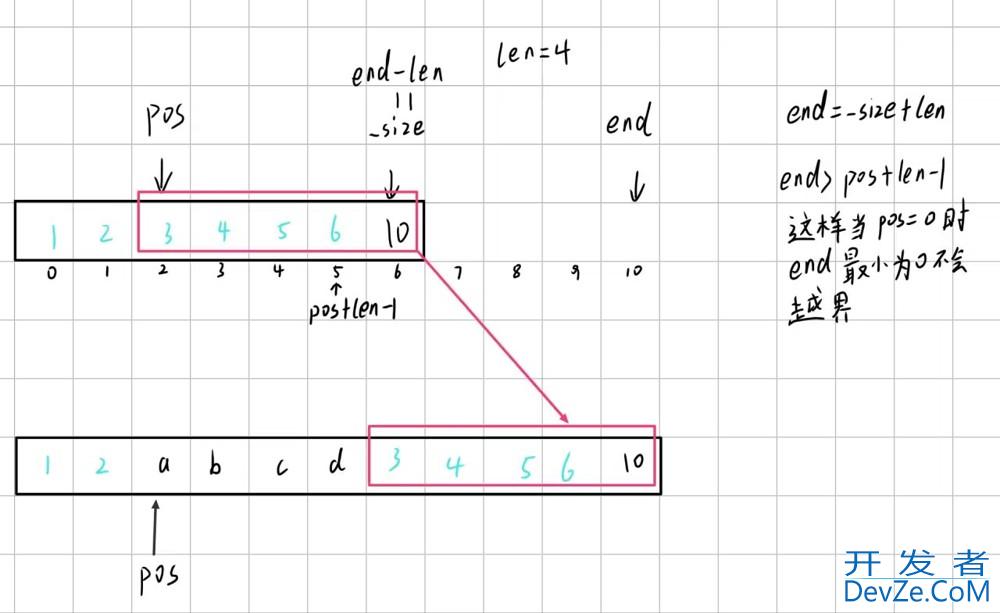 len=4
end-len
||
_size
pos
end
1 2 3 4 5 6 10
0 1 2 3 4 5 6 7 8 9 10
pos+len-1
end=_size+len
end>pos+len-1
这样当pos=0时
end最小为0不会
越界
1 2 a b c d 3 4 5 6 10
pos
开发者
DevZe.CoM